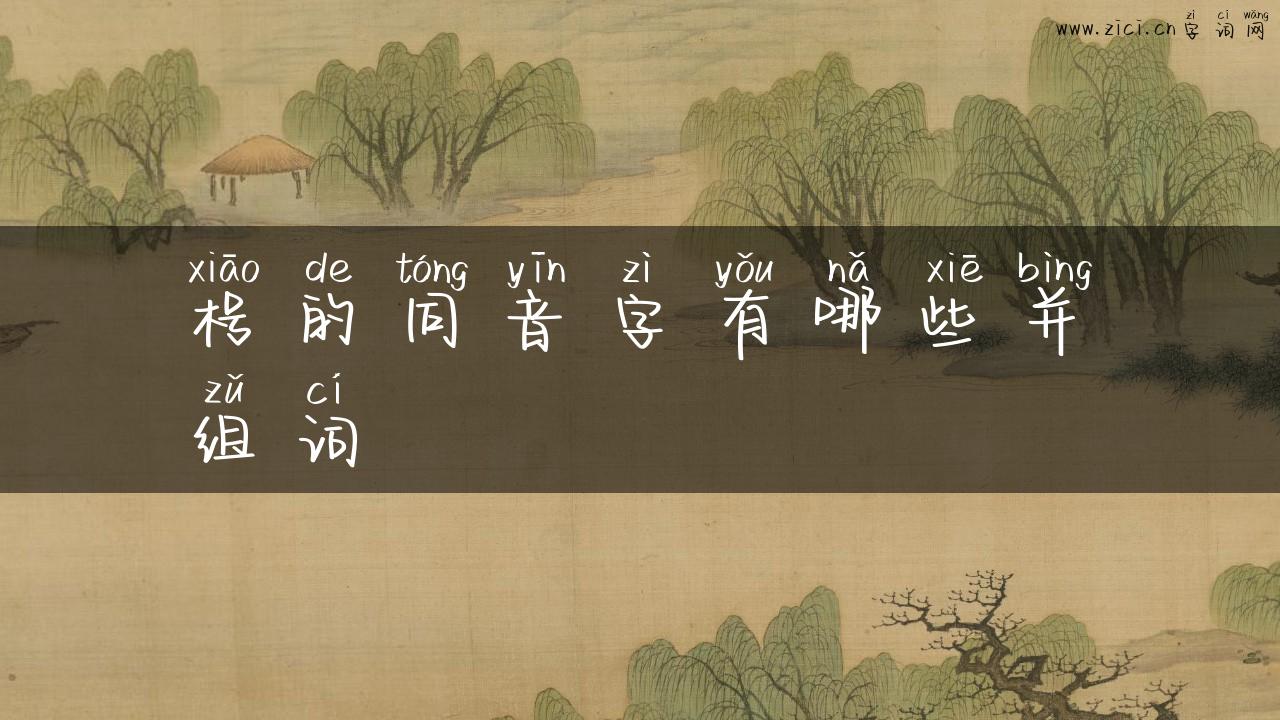 zì cí wǎng
www.zici.cn 字词网
xiāo de tóng yīn zì yǒu nǎ xiē bìng
枵的同音字有哪些并
zǔ cí
组词